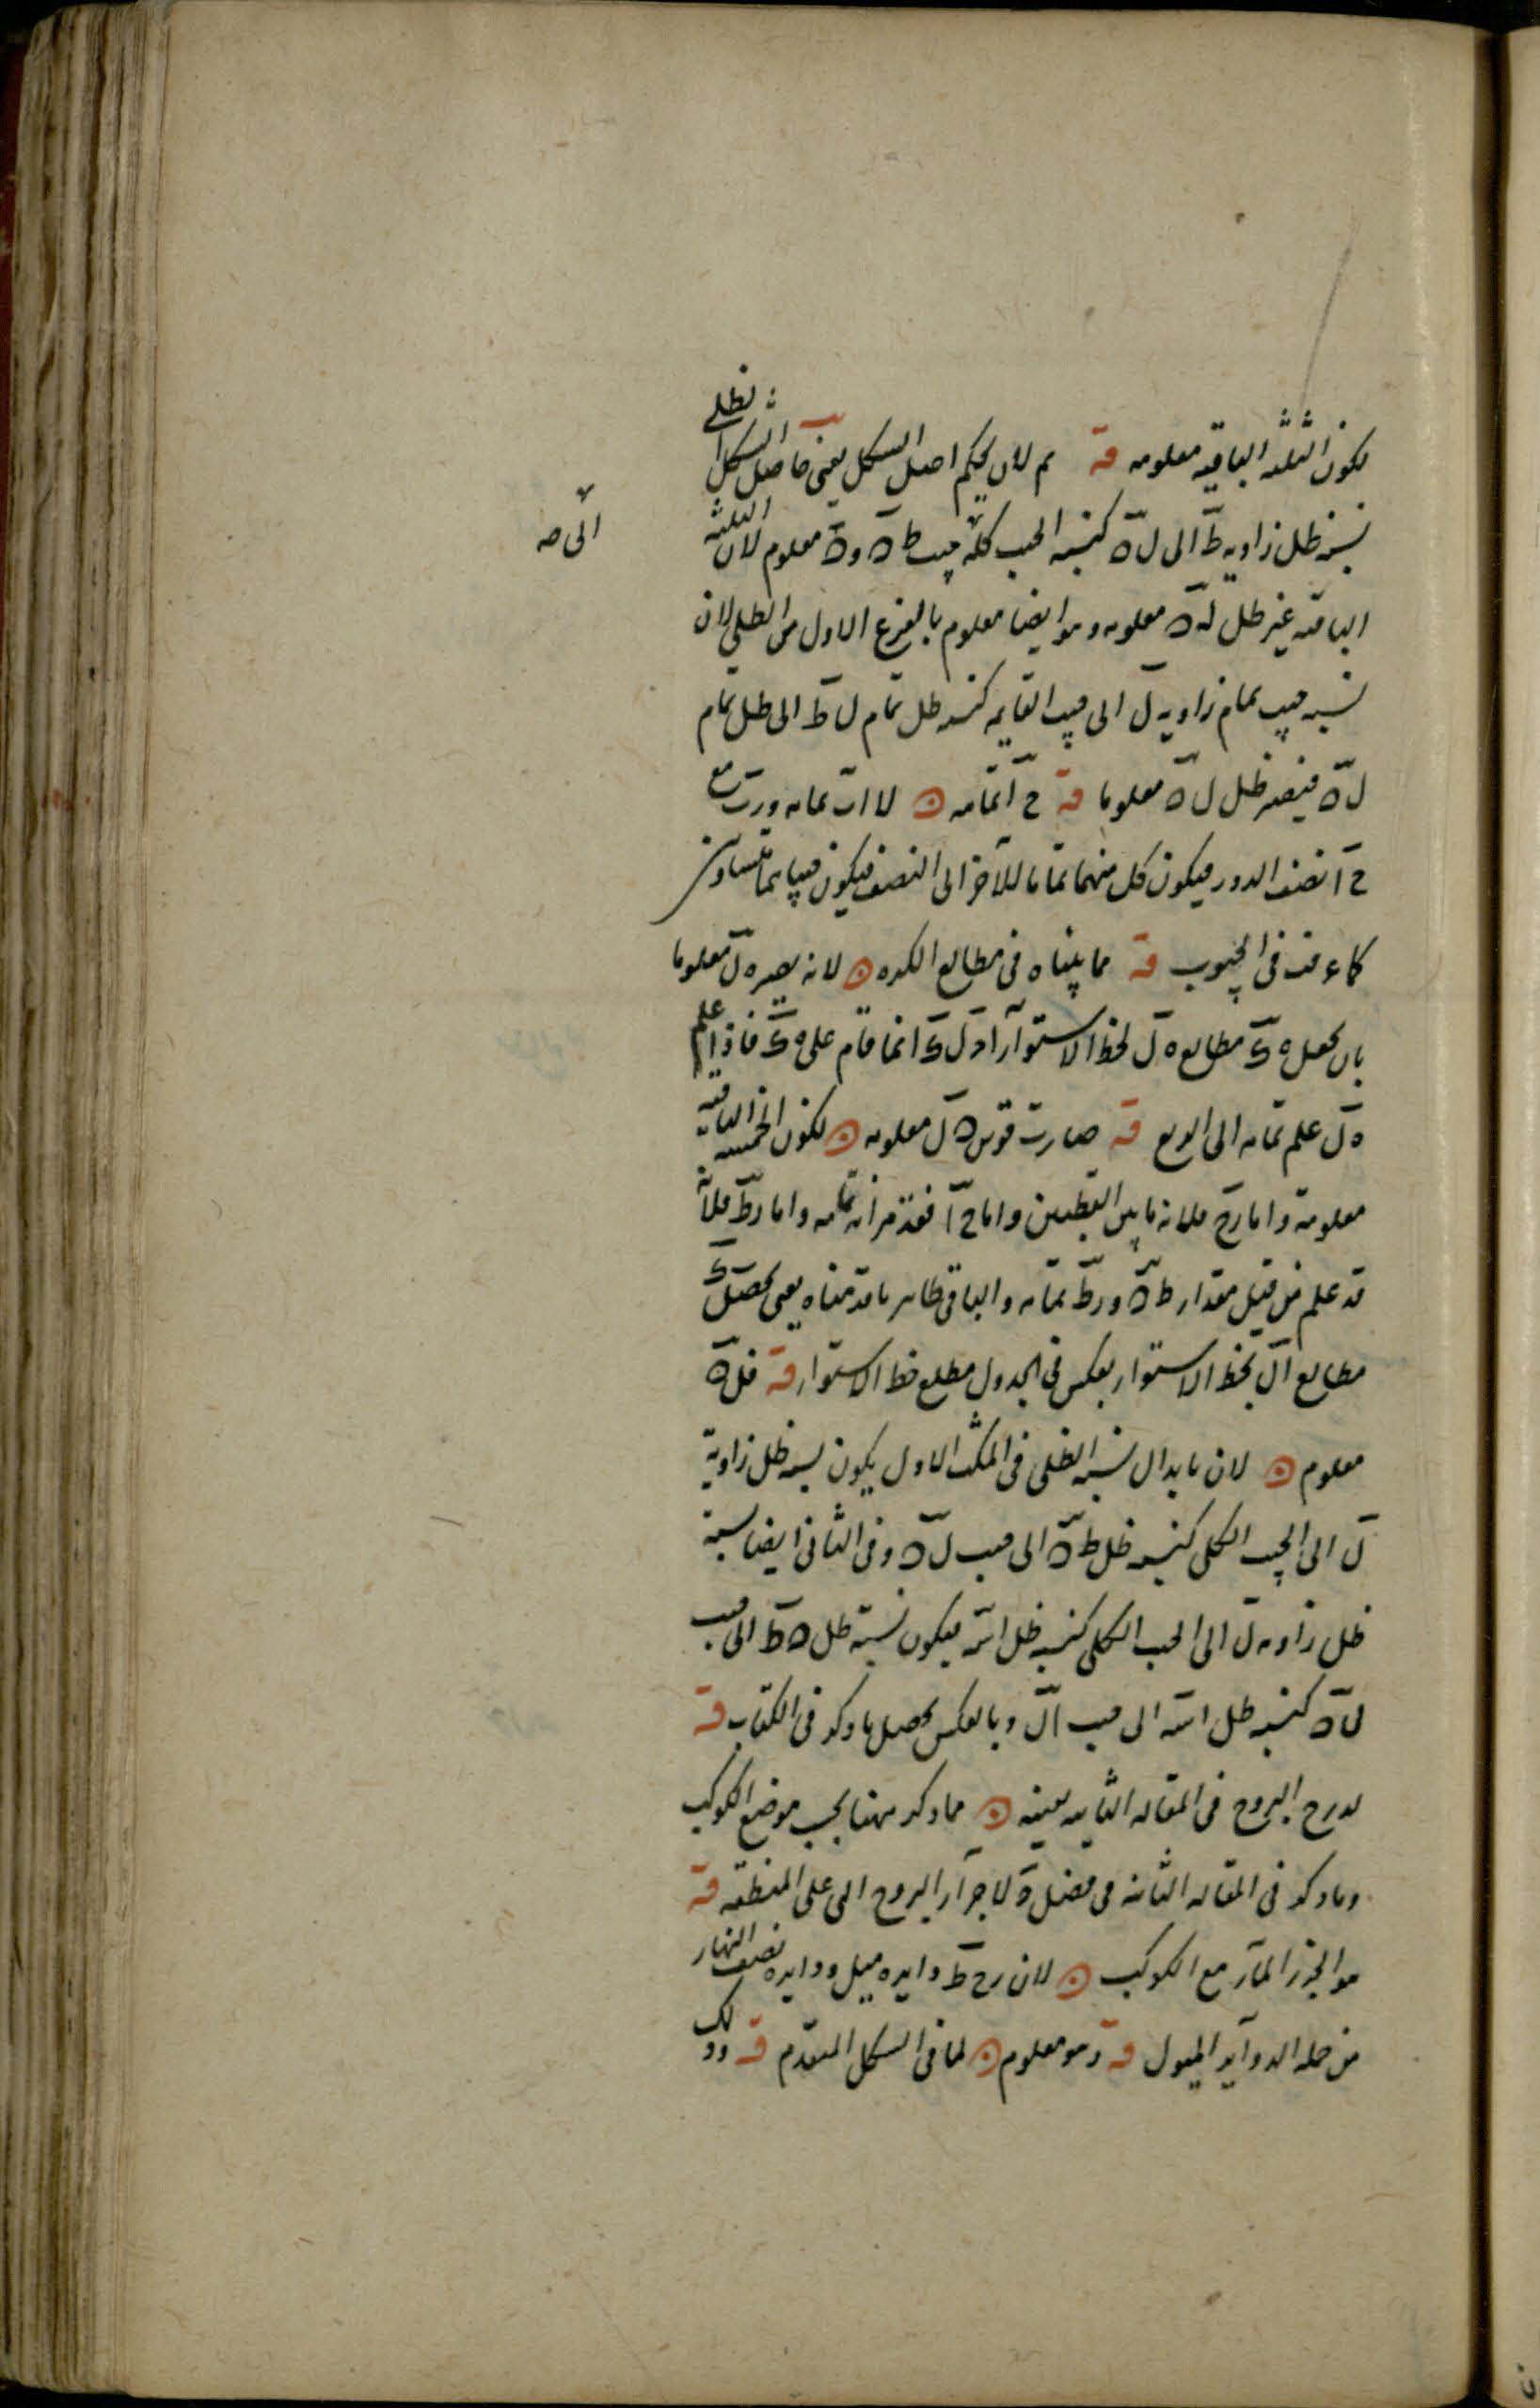 يكون الثلثه الباقيه معلومه قه ثم لان بحكم اصل الشكل يعنى حاصل الشكل الظلى
نسبه ظل زاويه ط الى ل ه كنسبه الجيب كله جيب ط ه و ه معلوم لان الثلثه
الى صه
الباقيه غير ظل ل ه معلومه وهو ايضا معلوم بالفرع الاول من الظلى لان
نسبه جيب تمام زاويه ل الى جيب القايمه كنسبه ظل تمام ل ط الى ظل تمام
ل ه فيصير ظل ل ه معلوما قه ح ا تمامه لا اب تمامه ورب مع
ح ا نصف الدور فيكون كل منهما تماما للآخر الى النصف فيكون جيباهما متساويين
كما عرفت فى الجيوب قه مما بيناه فى مطالع الكره لانه يصير ه ل معلوما
بان يجعل ه ك مطالع ه ل بخط الاستوآ اذ ل ك انما قام على ه ك فاذا علم
ه ل علم تمامه الى الربع قه صارت قوس ه ل معلومه لكون الخمسه الباقيه
معلومة واما رح فلانه ما بين القطبين واما ح ا فقد مر انه تمامه واما رط فلانه
قد علم من قبل مقدار ط ه ورط تمامه والباقى ظاهر مما قدمناه يعنى يحصل ك
مطالع ال بخط الاستوا بعكس فى الجدول مطالع خط الاستوا قه فل ه
معلوم لان بابدال نسبه الظلى فى المثلث الاول يكون نسبه ظل زاوية
ل الى الجيب الكلى كنسبه ظل ط ه الى جيب ل ه وفى الثانى ايضا نسبة
ظل زاويه ل الى الجيب الكلى كنسبه ظل اب فيكون نسبة ظل ه ط الى جيب
ل ه كنسبه ظل اب الى جيب ال وبالعكس يحصل ما ذكر فى الكتاب قه
لدرج البروج فى المقاله الثانيه بعينه مما ذكر ههنا بحسب موضع الكوكب
وما ذكر فى المقاله الثانيه من فصل لاجزآ البروج التى على المنطقه قه
هو الجزؤ المآر مع الكوكب لان رح ط دايره ميل ودايره نصف النهار
من جمله الدوآير الميول قه وهو معلوم لما فى الشكل المتقدم قه وذلك